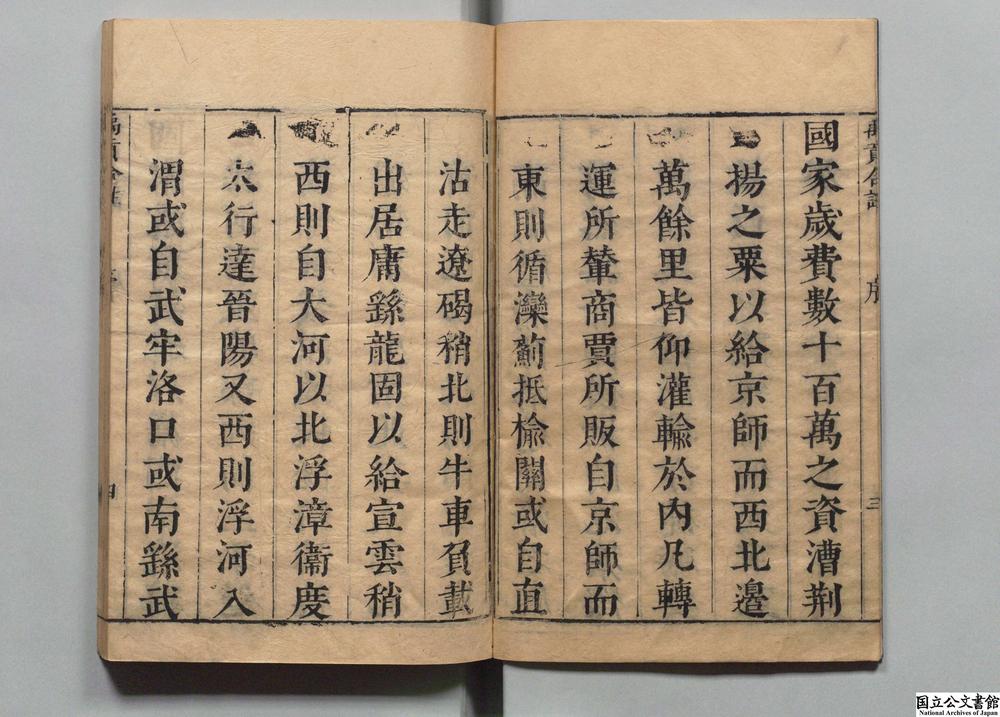 禹貢合註 序 三
國家歲費數十百萬之資漕荆
揚之粟以給京師而西北邊
萬餘里皆仰灌輸於内凡轉
運所輦商賈所販自京師而
東則循灤薊抵楡關或自直
沽走遼碣稍北則牛車負載
出居庸繇龍固以給宣雲稍
西則自大河以北浮漳衞度
太行達晉陽又西則浮河入
渭或自武牢洛口或南繇武
禹貢合註
四
国立公文書館
National Archives of Japan